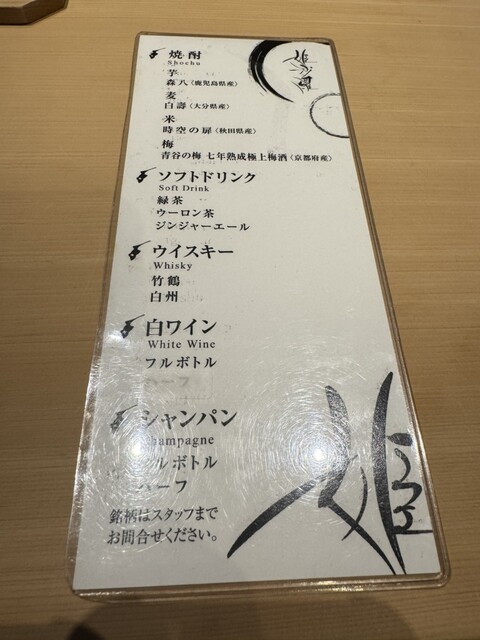 焼酎
Shochu
芋
森八〈鹿児島県産〉
麦
白壽〈大分県産〉
米
時空の扉〈秋田県産〉
梅
青谷の梅 七年熟成極上梅酒〈京都府産〉
ソフトドリンク
Soft Drink
緑茶
ウーロン茶
ジンジャーエール
ウイスキー
Whisky
竹鶴
白州
白ワイン
White Wine
フルボトル
ハーフ
シャンパン
Champagne
フルボトル
ハーフ
銘柄はスタッフまで
お問合せください。